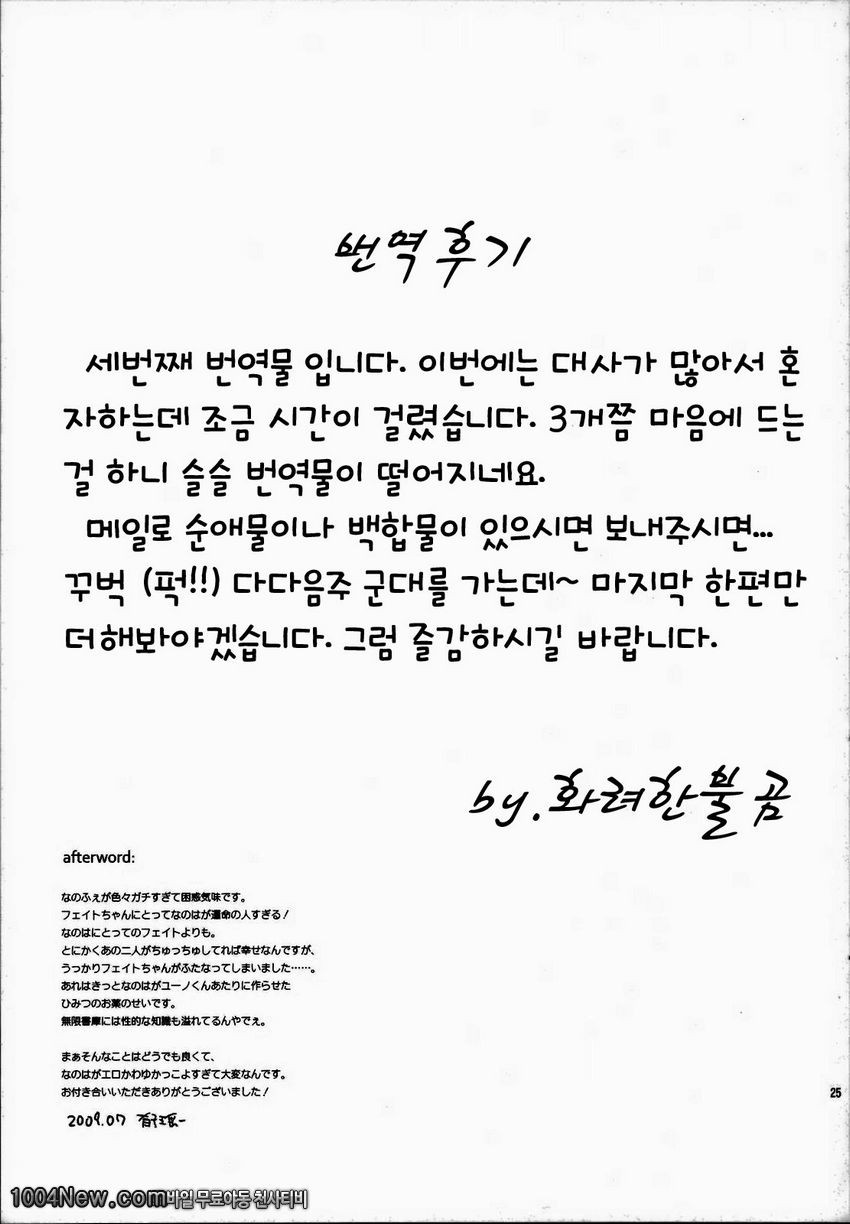 번역후기
세번째 번역물 입니다. 이번에는 대사가 많아서 혼
자하는데 조금 시간이 걸렸습니다. 3개쯤 마음에 드는
걸 하니 슬슬 번역물이 떨어지네요.
메일로 순애물이나 백합물이 있으시면 보내주시면...
꾸벅 (퍽!!) 다다음주 군대를 가는데~ 마지막 한편만
더해봐야겠습니다. 그럼 즐감하시길 바랍니다.
by. 화려한불곰
afterword:
なのふぇが色々ガチすぎて困惑気味です。
フェイトちゃんにとってなのはが運命の人すぎる!
なのはにとってのフェイトよりも。
とにかくあの二人がちゅっちゅしてれば幸せなんですが、
うっかりフェイトちゃんがふたなってしまいました……。
あれはきっとなのはがユーノくんあたりに作らせた
ひみつのお薬のせいです。
無限書庫には性的な知識も溢れてるんやでぇ。
まぁそんなことはどうでも良くて、
なのはがエロかわゆかっこよすぎて大変なんです。
お付き合いいただきありがとうございました!
2009.07
25
1004New.com 모바일 무료야동 천사티비